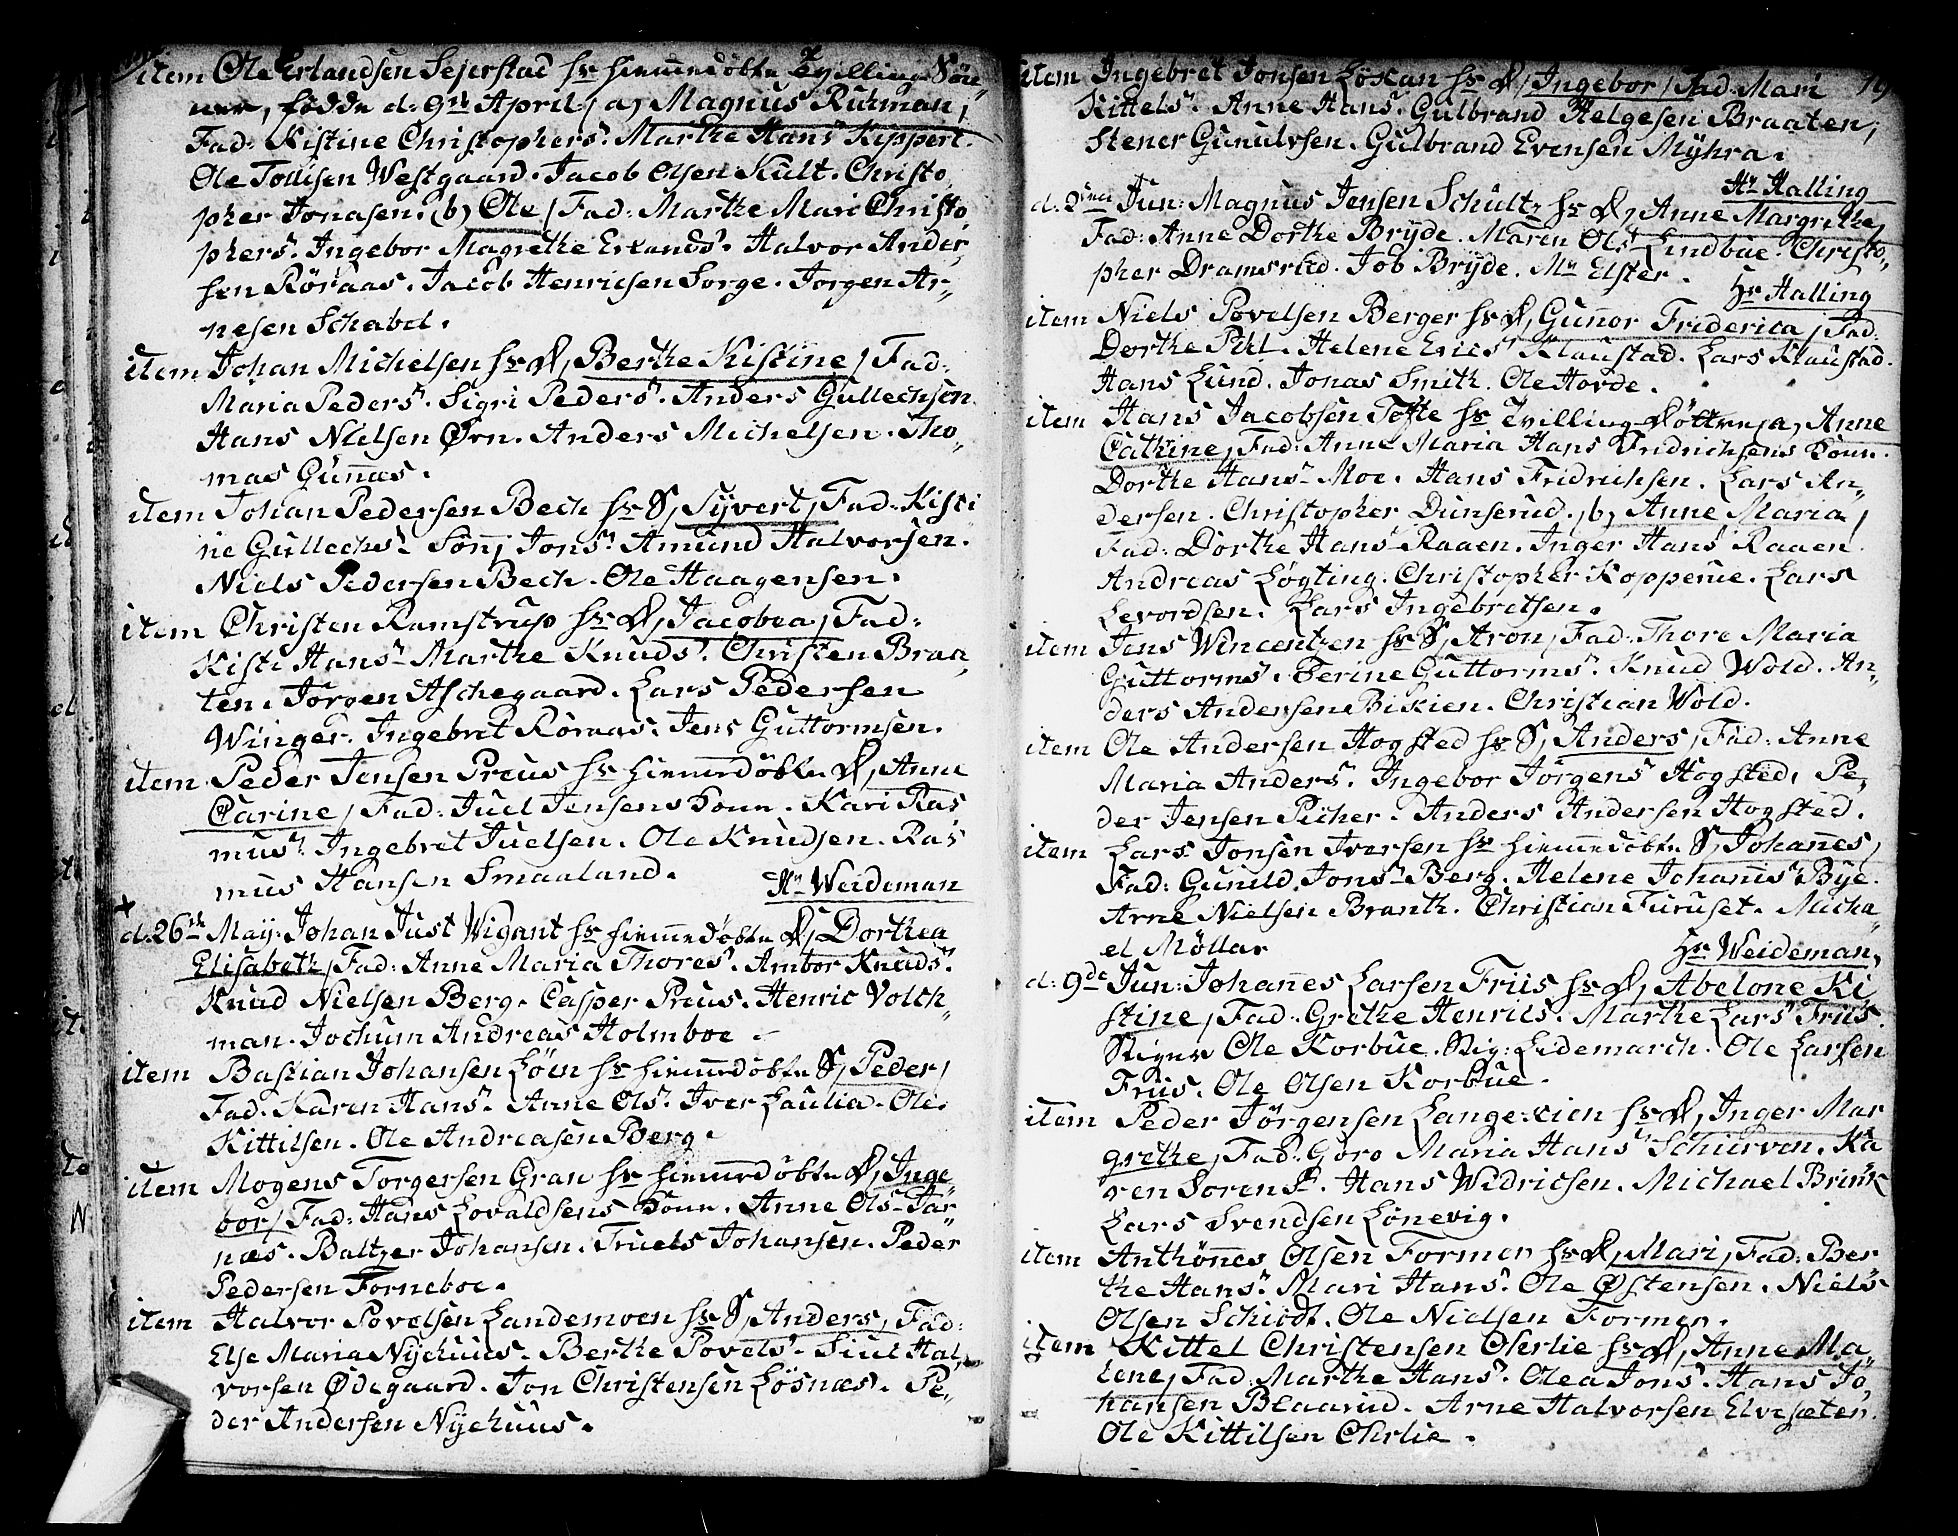 item Ole Erlandsen Sejerstad hs hiemmedöbte Tvilling Sön
ner, födde d. 9de April, a, Magnus Ruhman,
Fad: Kistine Christophers. Marthe Hans Kippert.
Ole Tollisen Westgaard. Jacob Olsen Kult. Christo
pher Jonasen. (b, Ole, Fad: Marthe Mari Christo
phers. Ingebor Magrethe Erlands. Halvor Ander
sen Röraas. Jacob Henricsen Sorge. Jörgen Ar-
nesen Schabel.
item Johan Michelsen hs D, Berthe Kistine, Fad:
Maria Peders. Sigri Peders. Anders Gullechsen
Hans Nielsen Ørn. Anders Michelsen. Tho
mas Guñæs.
item Johan Pedersen Bech hs S, Syvert, Fad: Kisti
ne Gullechs. Sönj Jons. Amund Halvorsen.
Niels Pedersen Bech. Ole Haagensen.
item Christen Ramstrup hs D, Jacobea, Fad:
Kisti Hans. Marthe Knuds. Christen Braa
ten. Jörgen Aschegaard. Lars Pedersen
Winger. Ingebret Röraas. Jens Guttormsen.
item Peder Jensen Preus hs hiemmedöbte D, Anne
Carine, Fad: Juel Jensens Konn. Kari Ras
mus. Ingebret Juelsen. Ole Knudsen. Ras
mus Hansen Smaaland.
Hr Weideman
d. 26de May. Johan Just Wigant hs hiemmedöbte D, Dorthea
Elisabeth, Fad: Anne Maria Thores. Ambor Knuds.
Knud Nielsen Berg. Casper Preus. Henric Volch
man. Jochum Andreas Holmboe.
item Bastian Johansen Löen hs hiemmedöbte S, Peder,
Fad. Karen Hans. Anne Ols. Iver Laulia. Ole
Kittilsen. Ole Andreasen Berg.
item Mogens Torgersen Gran hs hiemmedöbte D, Inge
bor, Fad: Hans Lovaldsens Konn. Anne Ols Tar
næs. Baltzer Johansen. Truels Johansen. Peder
Pedersen Forneboe.
item Halvor Povelsen Landemoen hs S, Anders, Fad:
Else Maria Nyehuus. Berthe Povels. Siul Hal
vorsen Ødegaard. Jon Christensen Lösnæs. Pe
der Andersen Nyehuus.
item Ingebret Jonsen Lökan hs D, Ingebor, Fad: Mari
Kittels. Anne Hans. Gulbrand Helgesen Braaten,
Stener Gunulvsen. Gulbrand Evensen Myhra.
Hr Halling
d. 2den Jun: Magnus Jensen Schultz hs D, Anne Margrethe,
Fad: Anne Dorthe Bryde. Maren Ols Lindbae. Christo
pher Dramsrud. Job Bryde. Mr Elster.
Hr Halling
item Niels Povelsen Berger hs D, Guñor Friderica, Fad:
Dorthe Pihl. Helene Erics Klaustad. Lars Klaustad.
Hans Lund. Jonas Smith. Ole Horde.
item Hans Jacobsen Tofte hs Tvilling Döttre, a, Anne
Cathrine, Fad: Anne Maria Hans Fridrichsens Konn.
Dorthe Hans Moe. Hans Fridrichsen. Lars An
dersen. Christopher Dunserud. b, Anne Maria,
Fad: Dorthe Hans Raaen. Inger Hans Raaen
Andreas Lögting. Christopher Kopperue. Lars
Levordsen. Lars Ingebretsen.
item Jens Wincentzen hs S, Aron, Fad: Thore Maria
Guttorms. Terine Guttorms. Knud Wold. An
ders Andersen Bikien. Christian Wold.
item Ole Andersen Hogsted hs S, Anders, Fad: Anne
Maria Anders. Ingebor Jörgens Hogsted. Pe
der Jensen Picher. Anders Andersen Hogsted.
item Lars Jonsen Iversen hs hiemmedöbte S, Johañes,
Fad: Gunild Jons Berg. Helene Johannis Bye.
Arne Nielsen Branth. Christian Furuset. Micha
el Möllar
Hr Weideman,
d: 9de Jun: Johañes Larsen Friis hs D, Abelone Ki
stine, Fad: Grethe Henrics. Marthe Lars Friis.
Stiger Ole Korbue. Stig: Lidemarch. Ole Larsen
Friis. Ole Olsen Korbue.
item Peder Jörgensen Langexien hs D, Inger Mar
grethe, Fad: Goro Maria Hans Schierven. Ka
ren Sören S. Hans Widricsen. Michael Brink
Lars Svendsen Lönevig.
item Anthöñes Olsen Formen hs D, Mari, Fad: Ber
the Hans. Mari Hans. Ole Østensen. Niels
Olsen Schiodt. Ole Nielsen Formen.
item Kittel Christensen Ohrlie hs D, Anne Ma
lene, Fad: Marthe Hans. Olea Jons. Hans Jo
hansen Blaarud. Arne Halvorsen Elvesæter.
Ole Kittilsen Ohrlie.